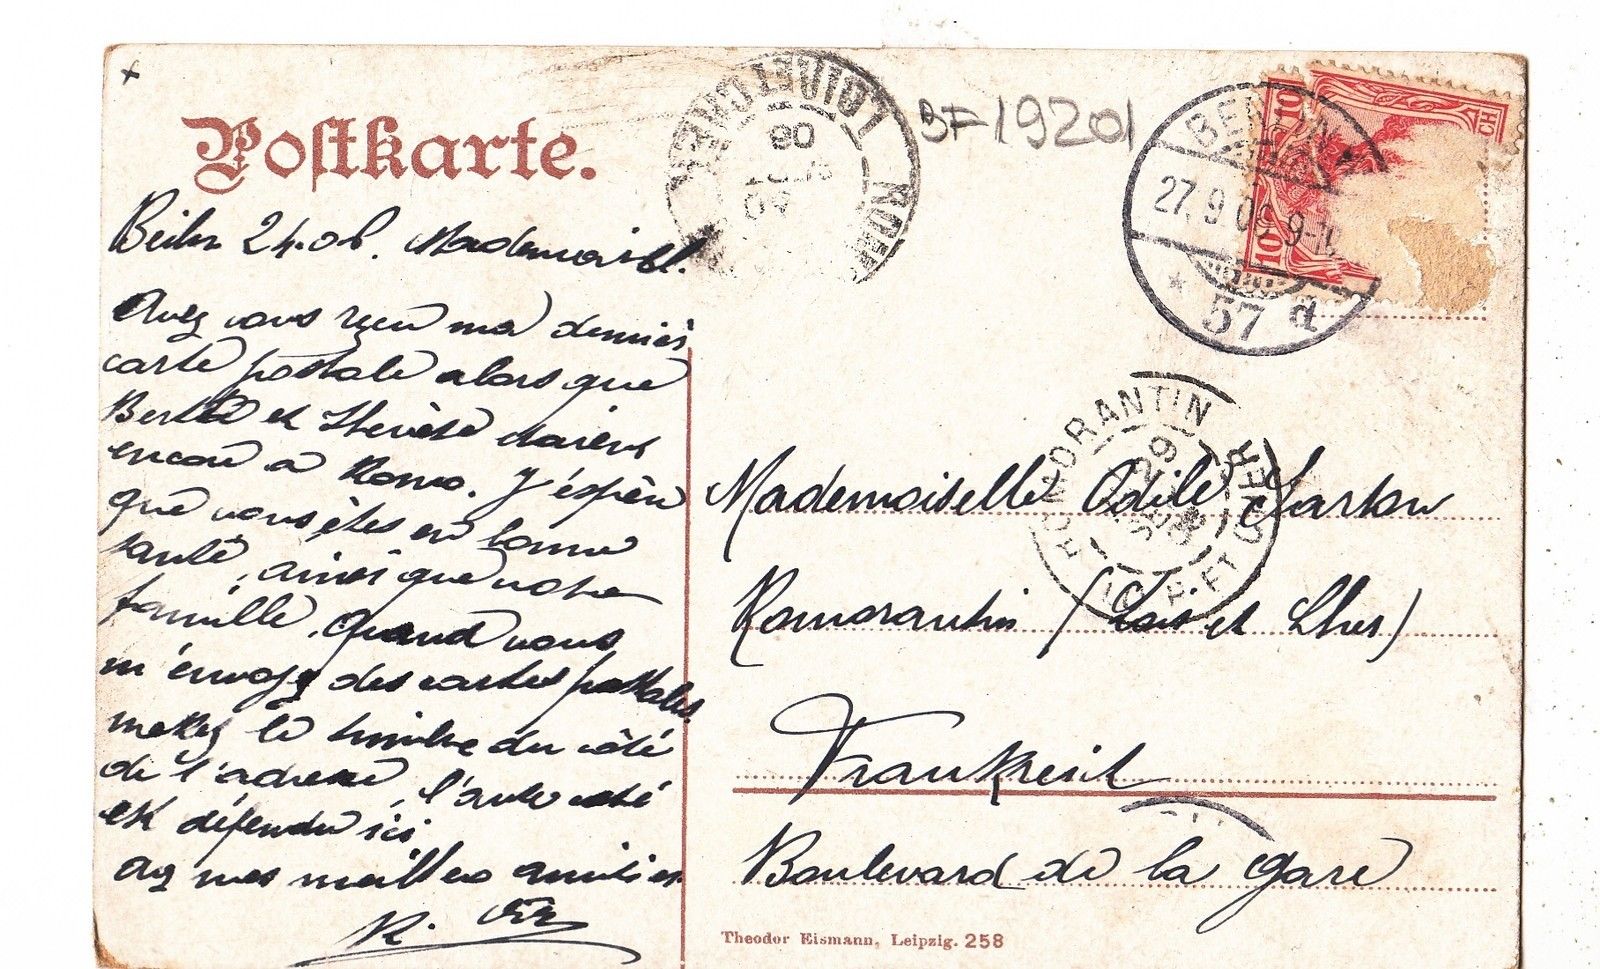 Postkarte.
BF 19201
LOIR ET CHER
BERLIN
27.9.06 9-10
* 57 d
10
10
CH
Berlin 24.06. Mademoiselle.
Avez vous reçu ma dernièr
carte postale alors que
et Thérèse étaient
encore à Romo. J'éspère
que vous êtes en bonne
santé, ainsi que votre
famille. Quand vous
m'envoyez des cartes postales
mettez le timbre du côté
de l'adresse, l'autre côté
est défendu ici.
mes meilleures amitiés
R.
ROMORANTIN
29
LOIR-ET-CHER
Mademoiselle Odile
Romorantin (Loir et Cher)
Frankreich
Boulevard de la Gare
Theodor Eismann, Leipzig. 258